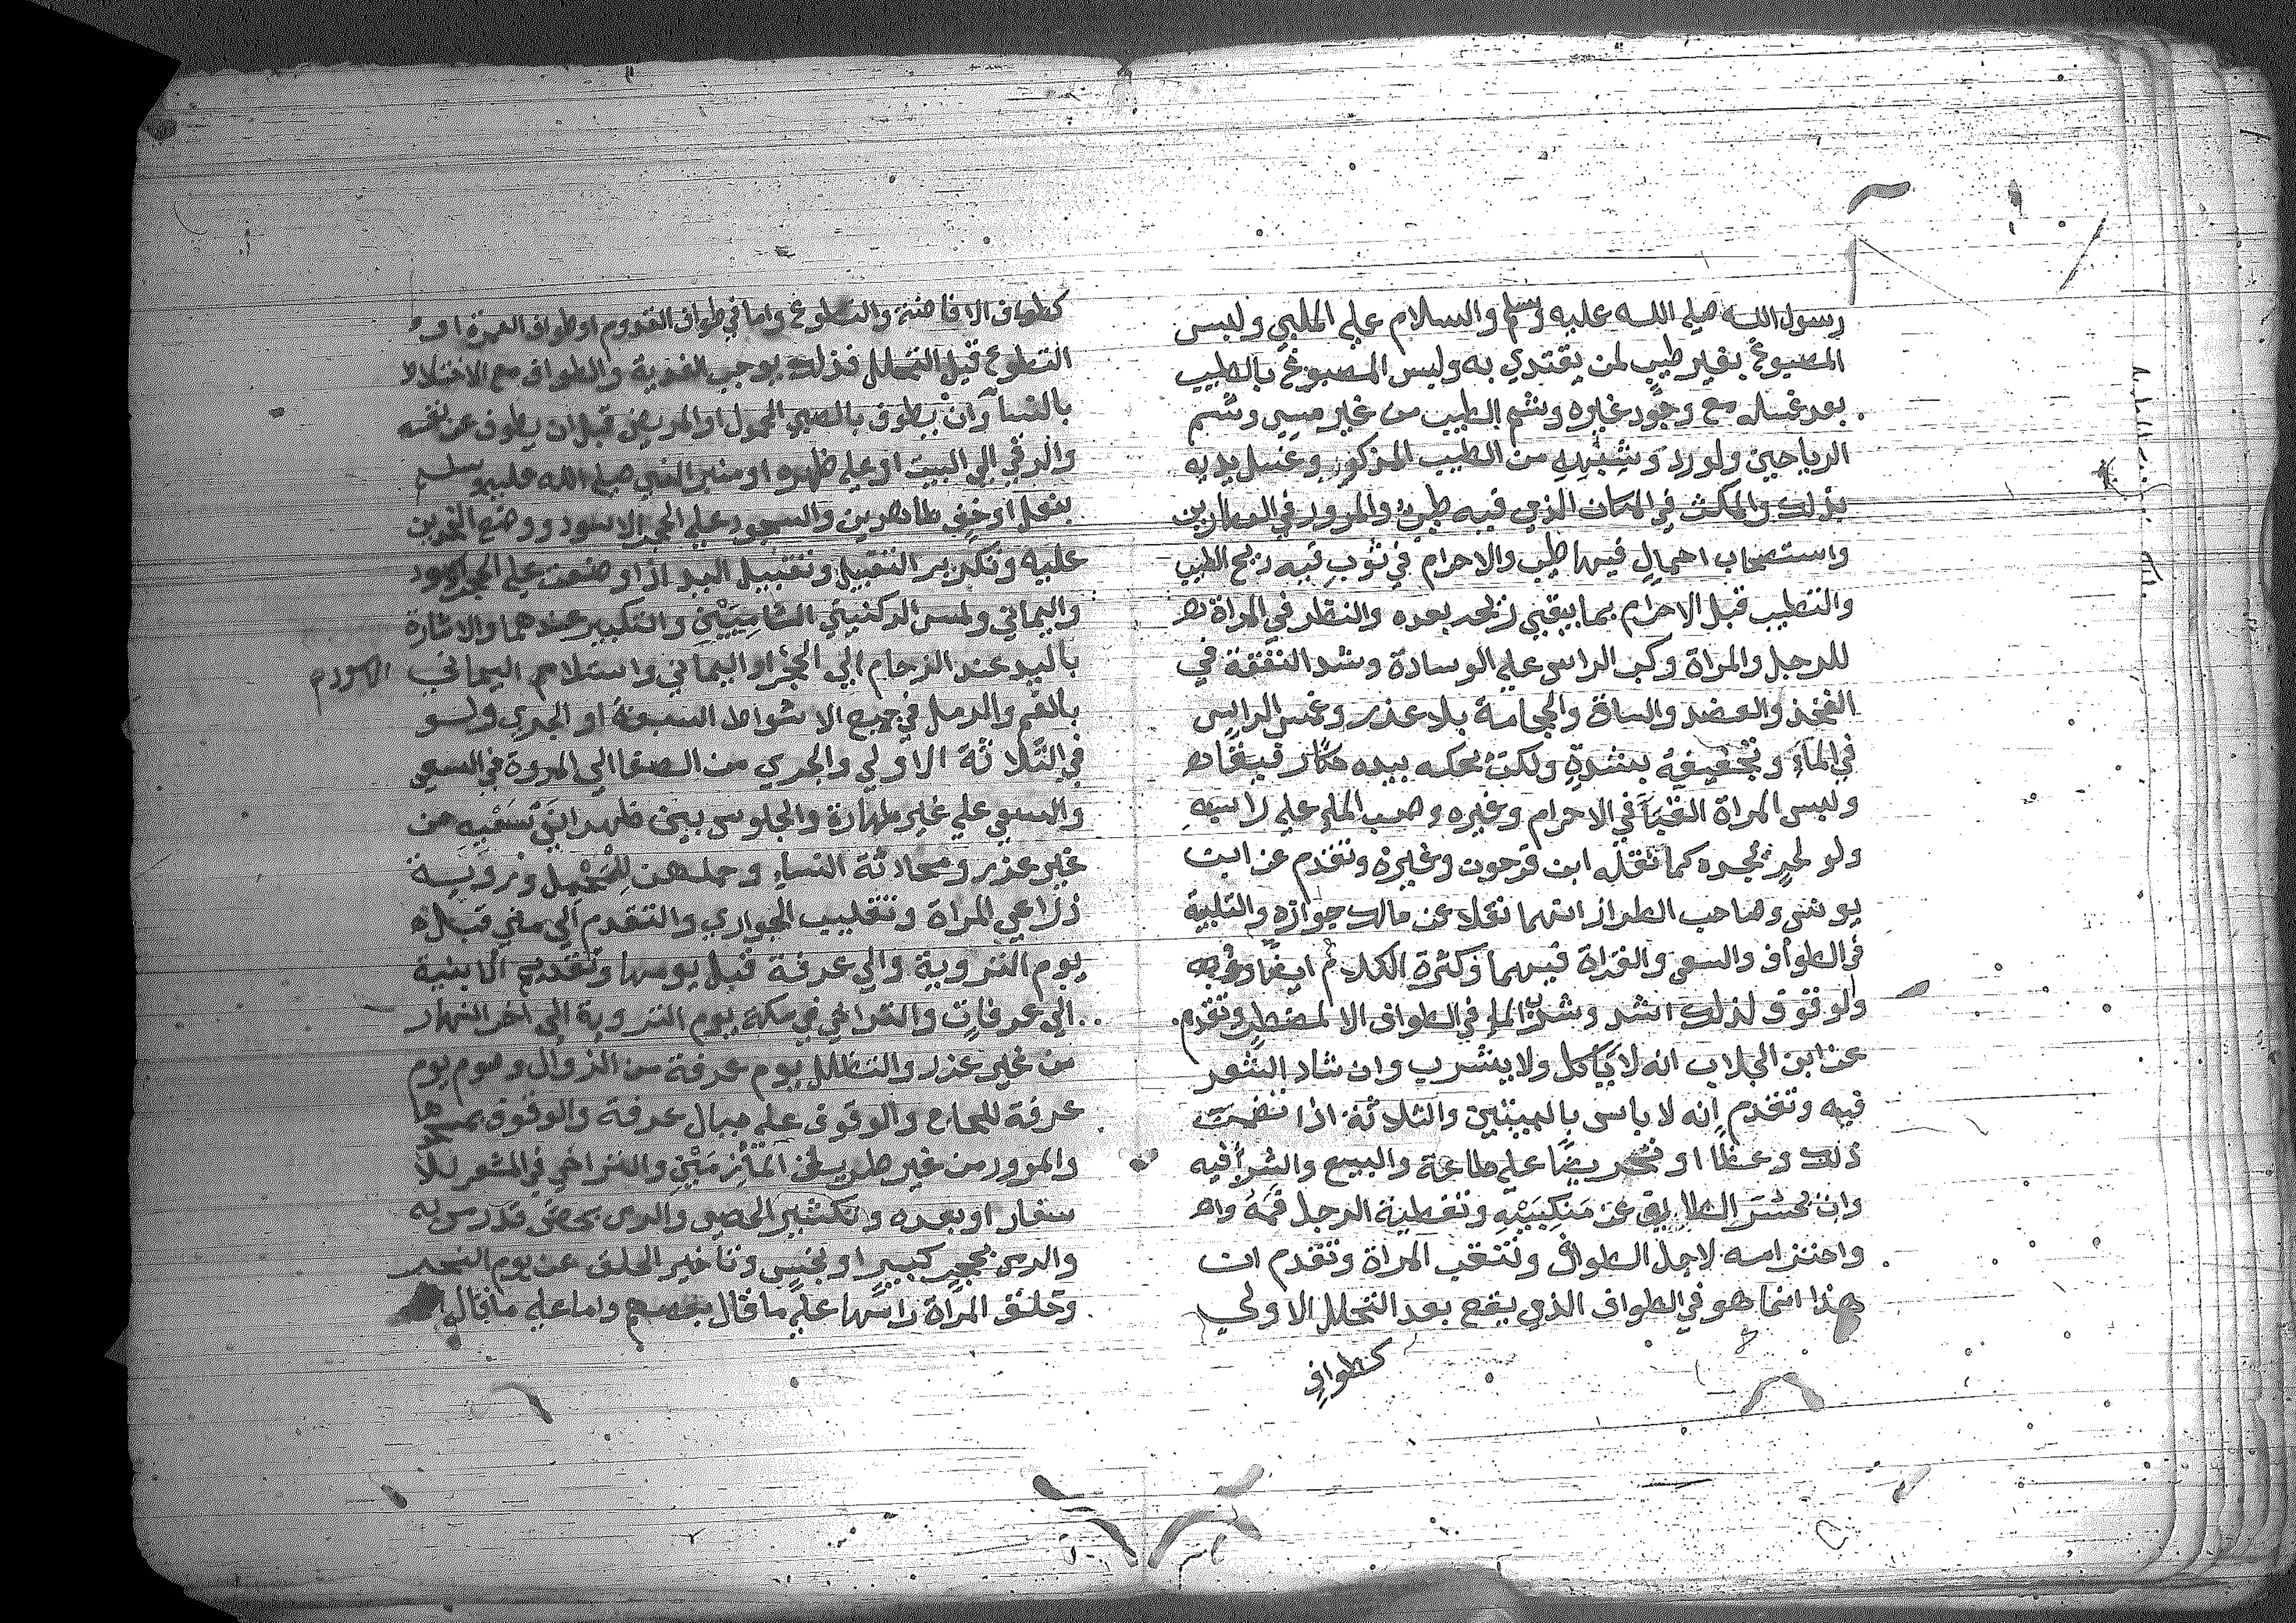 رسول الله صلي الله عليه وسلم والسلام علي الملبي ولبس
المصبوغ بغير طيب لمن يقتدي به ولبس المصبوغ بالطيب
بعد غسله مع وجود غيره وشم الطيب من غير مس وشم
الرياحين ولورد وشبهه من الطيب المذكور وغسل يديه
بذلك والمكث في المكان الذي فيه طيب والمرور في العطارين
واستصحاب احمال فيها طيب والاحرام في ثوب فيه ريح الطيب
والتطيب قبل الاحرام بما يبقي ريحه بعده والنظر في المراة
للرجل والمراة وكب الراس علي الوسادة وشد النفقة في
الفخذ والعضد والساق والحجامة بلا عذر وغمس الراس
في الماء وتجفيفه بشدة ولكن يحكه بيده
ولبس المراة القبا في الاحرام وغيره وصب الماء علي راسه
ولو لحر يجده كما نقله ابن فرحون وغيره وتقدم عن ابن
يونس وصاحب الطراز انهما نقلا عن مالك جوازه والتلبية
في الطواف والسعي والقراة فيهما وكثرة الكلام ايضا
ولوقوف لذلك اشد وشرب الماء في الطواف الا لمضطر وتقدم
عن ابن الجلاب انه لا ياكل ولا يشرب وانشاد الشعر
فيه وتقدم انه لا باس بالبيتين والثلاثة اذا تضمنت
ذلك وعظا او تحريضا علي طاعة والبيع والشرا فيه
وان يحسر الطايف عن منكبيه وتغطية الرجل فمه
واحتزامه لاجل الطواف وتنتقب المراة وتقدم ان
هذا انما هو في الطواف الذي يقع بعد التحلل الاولي
كطواف
كطواف الافاضة والتطوع واما في طواف القدوم او طواف العمرة او
التطوع قبل التحلل فذلك يوجب الفدية والطواف مع الاختلاط
بالنسا وان يطوف بالصبي المحمول او المريض قبل ان يطوف عن نفسه
والرقي الي البيت او علي ظهره او منبر النبي صلي الله عليه وسلم
بنعل او خف طاهرين والسجود علي الحجر الاسود ووضع الخدين
عليه وتكرير التقبيل وتقبيل اليد اذا وضعت علي الحجر الاسود
واليماني ولمس الركنين الشاميين والتكبير عندهما والاشارة
باليد عند الزحام الي الحجر او اليماني واستلام اليماني
الاسود
بالفم والرمل في جميع الاشواط السبعة او الجري ولو
في الثلاثة الاولي والجري من الصفا الي المروة في السعي
والسعي علي غير طهارة والجلوس بين ظهراني سعيه من
غير عذر ومحادثة النساء وحملهن للمحمل وروية
ذراعي المراة وتقليب الجواري والتقدم الي مني قبل
يوم التروية والي عرفة قبل يومها وتقديم الابنية
الي عرفات والتراخي في مكة يوم التروية الي اخر النهار
من غير عذر والتظلل يوم عرفة من الزوال وصوم يوم
عرفة للحاج والوقوف علي جبال عرفة والوقوف بمسجدها
والمرور من غير طريق المازمين والتراخي في المشعر للا
سفار او بعده وتكسير الحصي والرمي بحصي قد رمي به
والرمي بحجر كبير او نجس وتاخير الحلق عن يوم النحر
وحلق المراة راسها علي ما قال بعضهم واما علي ما قال